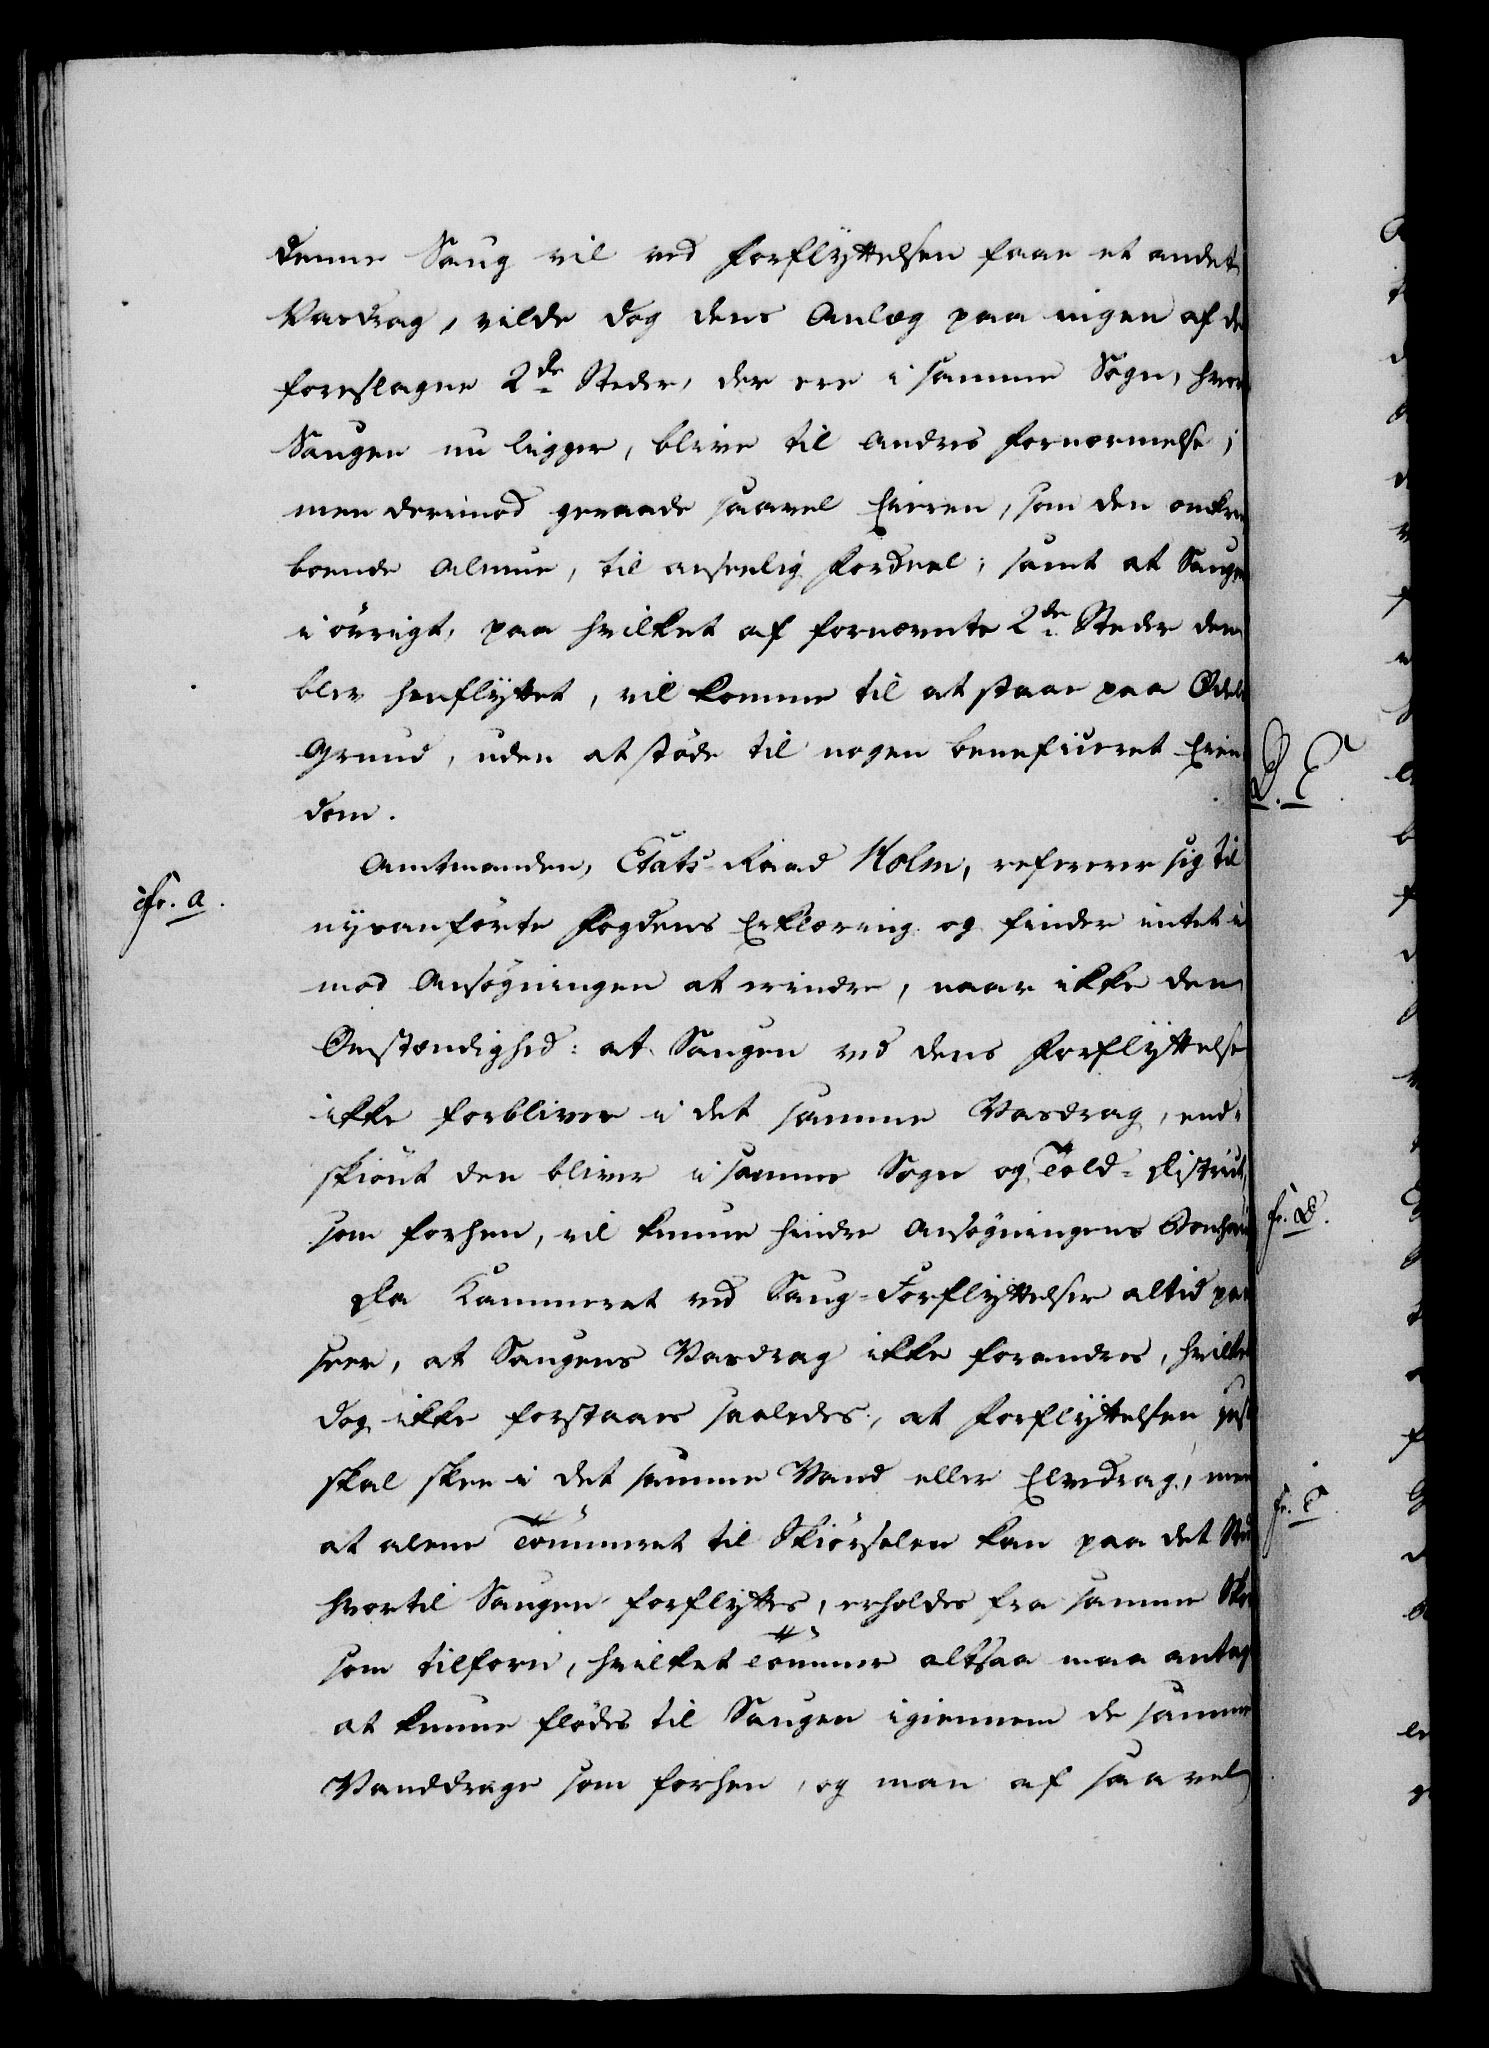 denne Saug vil ved Forflyttelsen faae et andet
Vasdrag, vilde dog dens Anlæg paa ingen af de
foreslagne 2de Steder, der ere i samme Sogn, hvor
Saugen nu ligger, blive til Andres Fornærmelse;
men derimod geraade saavel Eieren, som den omkring
boende Almue, til anseelig Fordeel; samt at Saugen
i övrigt, paa hvilket af fornævnte 2de Steder den
blev henflyttet, vil komme til at staae paa Odels
Grund, uden at støde til nogen beneficeret Eien
dom.
Amtmanden, Etats-Raad Holm, refererer sig til
cfr. a.
nysanförte Fogdens Erklæring og finder intet i
mod Ansögningen at erindre, naar ikke den
Omstændighed: at Saugen ved dens Forflyttelse
ikke forbliver i det samme Vasdrag, end-
skiönt den bliver i samme Sogn og Told-District,
som forhen, vil kunne hindre Ansögningens
Da Kammeret ved Saug-Forflyttelser altid paa
seer, at Saugens Vasdrag ikke forandres, hvilket
dog ikke forstaaes saaledes, at Forflyttelsen just
skal skee i det samme Vand eller Elvedrag, men
at alene Tömmeret til Skiörselen kan paa det Sted
hvortil Saugen forflyttes, erholdes fra samme Skov
som tilforn, hvilket Tömmer altsaa maa antages
at kunne flödes til Saugen igiennem de samme
Vanddrage som forhen, og man af saavel